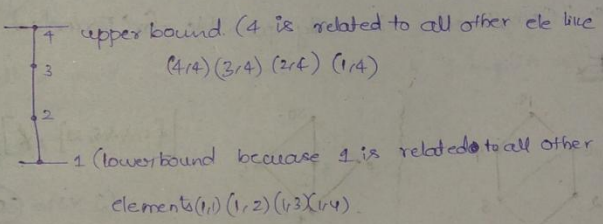 4 upper bound (4 is related to all other ele like
3 (4,4) (3,4) (2,4) (1,4)
2
1 (lower bound because 1 is related to all other
elements (1,1) (1,2) (1,3) (1,4)